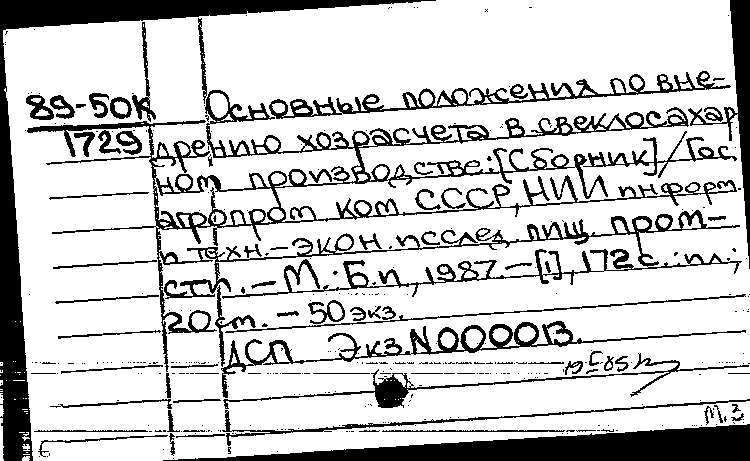 89-50К
1729
Основные положения по вне-
дрению хозрасчета в свеклосахар
ном производстве: [Сборник] / Гос.
агропром. ком. СССР, НИИ информ.
и техн.-экон. исслед. пищ. пром-
сти. - М.: Б.и., 1987. - [1], 172 с.: ил.;
20 см. - 50 экз.
ДСП. Экз. N 000013.
М.З
6